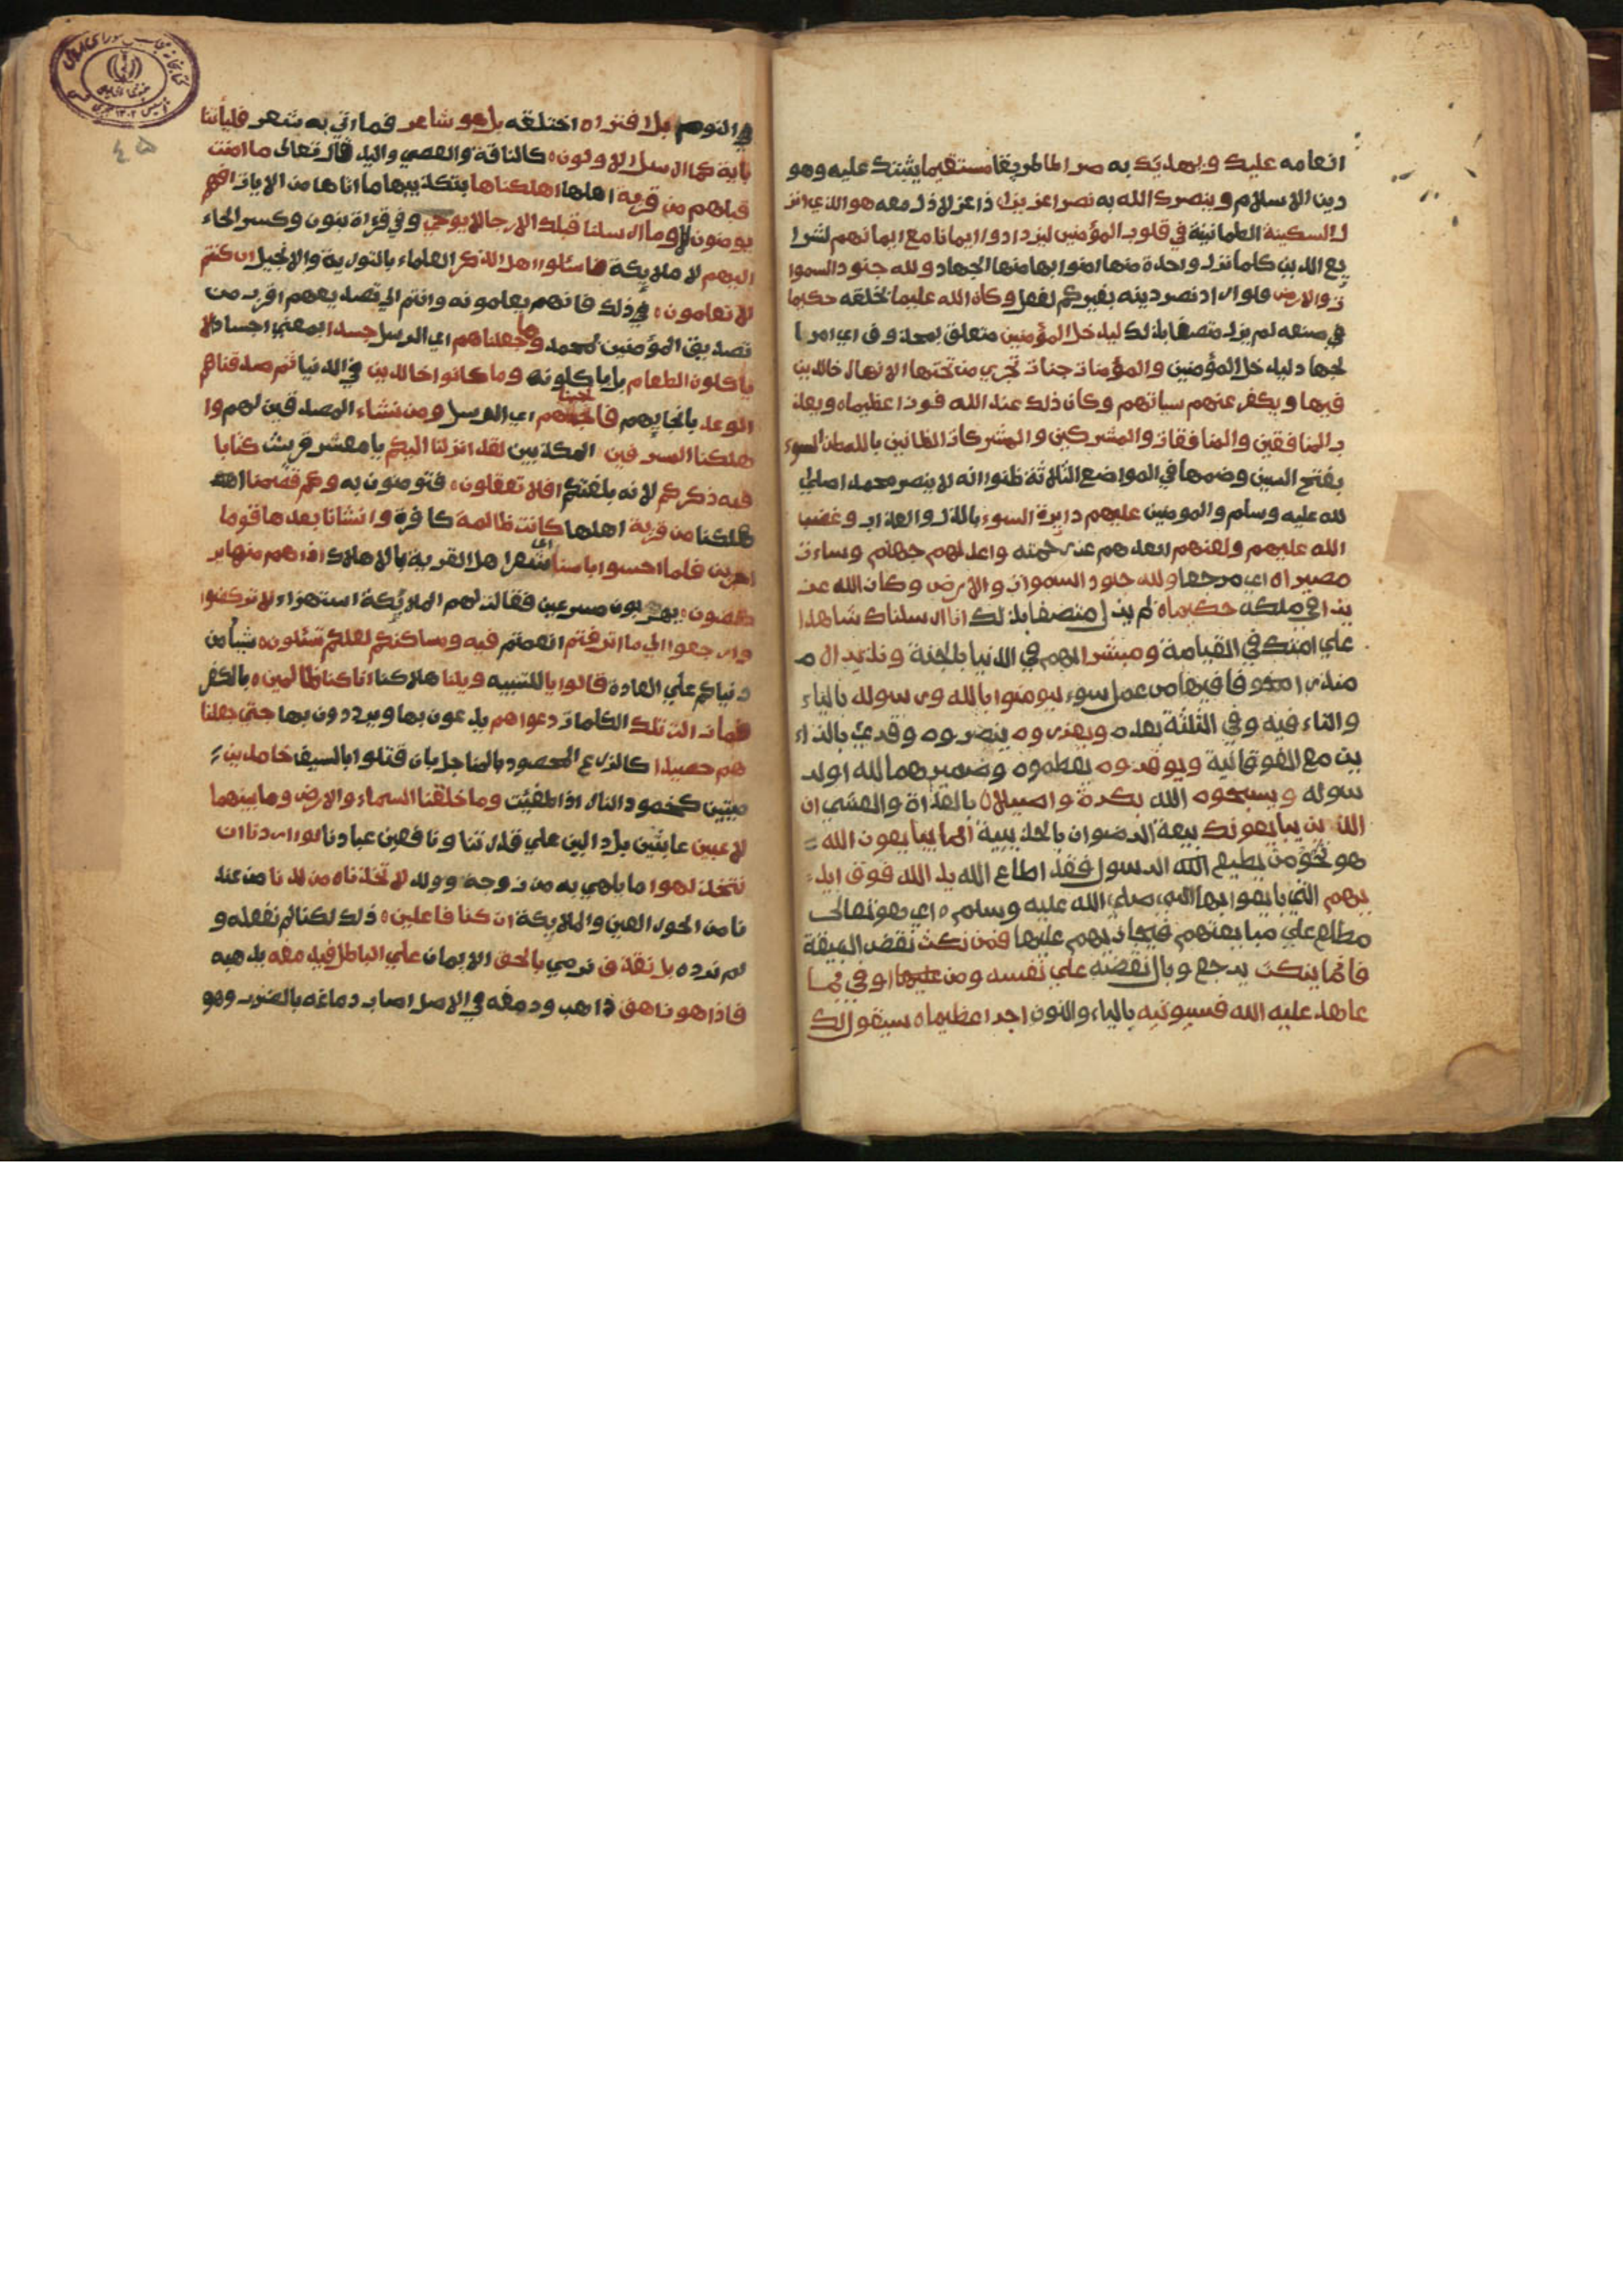 انعامه عليك ويهديك به صراطا طريقا مستقيما يثبتك عليه وهو
دين الاسلام وينصرك الله به نصرا عزيزا ذا عز لا ذل معه هو الذي انز
ل السكينة الطمانينة في قلوب المؤمنين ليزدادوا ايمانا مع ايمانهم بشرا
يع الدين كلما نزل واحدة منها امنوا بها منها الجهاد ولله جنود السموا
ت والارض فلو اراد نصر دينه بغيركم لفعل وكان الله عليما بخلقه حكيما
في صنعه لم يزل متصفا بذلك ليدخل المؤمنين متعلق بمحذوف اي امر با
لجهاد ليدخل المؤمنين والمؤمنات جنات تجري من تحتها الانهار خالدين
فيها ويكفر عنهم سياتهم وكان ذلك عند الله فوزا عظيما ه ويعذ
ب المنافقين والمنافقات والمشركين والمشركات الظانين بالله ظن السوء
بفتح السين وضمها في المواضع الثلاثة ظنوا انه لا ينصر محمدا صلي
لله عليه وسلم والمومنين عليهم دايرة السوء بالذل والعذاب وغضب
الله عليهم ولعنهم ابعدهم عن رحمته واعد لهم جهنم وساءت
مصيرا ه اي مرجعا ولله جنود السموات والارض وكان الله عز
يزا في ملكه حكيما ه لم يزل متصفا بذلك انا ارسلناك شاهدا
علي امتك في القيامة ومبشرا لهم في الدنيا بالجنة ونذيرا م
منذرا مخوفا فيها من عمل سوء ليومنوا بالله ورسوله بالياء
والتاء فيه وفي الثلثة بعده ويعزروه ينصروه وقري بالزاء
ين مع الفوقانية ويوقروه يعظموه وضميرهما لله اولر
سوله ويسبحوه الله بكرة واصيلا ه بالغداة والعشي ان
الذين يبايعونك بيعة الرضوان بالحديبية انما يبايعون الله
هو نحو من يطيع الله الرسول فقد اطاع الله يد الله فوق ايد
يهم التي بايعوا بها النبي صلي الله عليه وسلم ه اي هو تعالى
مطلع علي مبايعتهم فيجازيهم عليها فمن نكث نقض البيعة
فانما ينكث يرجع وبال نقضه علي نفسه ومن عليها اوفي بما
عاهد عليه الله فسيوتيه بالياء والنون اجرا عظيما ه سيقول لك
في النوم بل افتراه اختلقه بل هو شاعر فما اتي به شعر فلياتنا
باية كما ارسل الاولون ه كالناقة والعصي واليد قال تعالى ما امنت
قبلهم من قرية اهلها اهلكناها بتكذيبها ما اتاها من الايات افهم
يومنون لا وما ارسلنا قبلك الا رجالا يوحي وفي قراة بنون وكسر الحاء
اليهم لا ملايكة فاسئلوا اهل الذكر العلماء بالتورية والانجيل ان كنتم
لا تعلمون ه ذلك فانهم يعلمونه وانتم الي تصديقهم اقرب من
تصديق المؤمنين لمحمد وما جعلناهم اي الرسل جسدا بمعني اجسادا لا
ياكلون الطعام بل ياكلونه وما كانوا خالدين في الدنيا ثم صدقناهم
الوعد بانجايهم فانجيناهم اي الرسل ومن نشاء المصدقين لهم وا
هلكنا المسرفين المكذبين لقد انزلنا اليكم يا معشر قريش كتابا
فيه ذكركم لانه بلغتكم افلا تعقلون ه فتومنون به وكم قصمنا اهلـ
هلكنا من قرية اهلها كانت ظالمة كافرة وانشانا بعدها قوما
اخرين فلما احسوا باسنا اي شعر اهل القرية بالاهلاك اذا هم منها ير
كضون ه يهربون مسرعين فقالت لهم الملائكة استهزاء لا تركضوا
وارجعوا الي ما اترفتم انعمتم فيه ومساكنكم لعلكم تسئلون ه شيأ من
دنياكم علي العادة قالوا يا للتنبيه ويلنا هلاكنا انا كنا ظالمين ه بالكفر
فما زالت تلك الكلمات دعواهم يدعون بها ويرددون بها حتي جعلنا
هم حصيدا كالزرع المحصود بالمناجل بان قتلوا بالسيف خامدين
ميتين كخمود النار اذا طفيت وما خلقنا السماء والارض وما بينهما
لاعبين عابثين بل دالين علي قدرتنا ونافعين عبادنا لو اردنا ان
نتخذ لهوا ما يلهي به من زوجة وولد لاتخذناه من لدنا من عند
نا من الحور العين والملايكة ان كنا فاعلين ه ذلك لكنا لم نفعله و
لم نرده بل نقذف نرمي بالحق الايمان علي الباطل فيدمغه يذهبه
فاذا هو زاهق ذاهب ودمغه في الاصل اصاب دماغه بالضرب وهو
٤٥